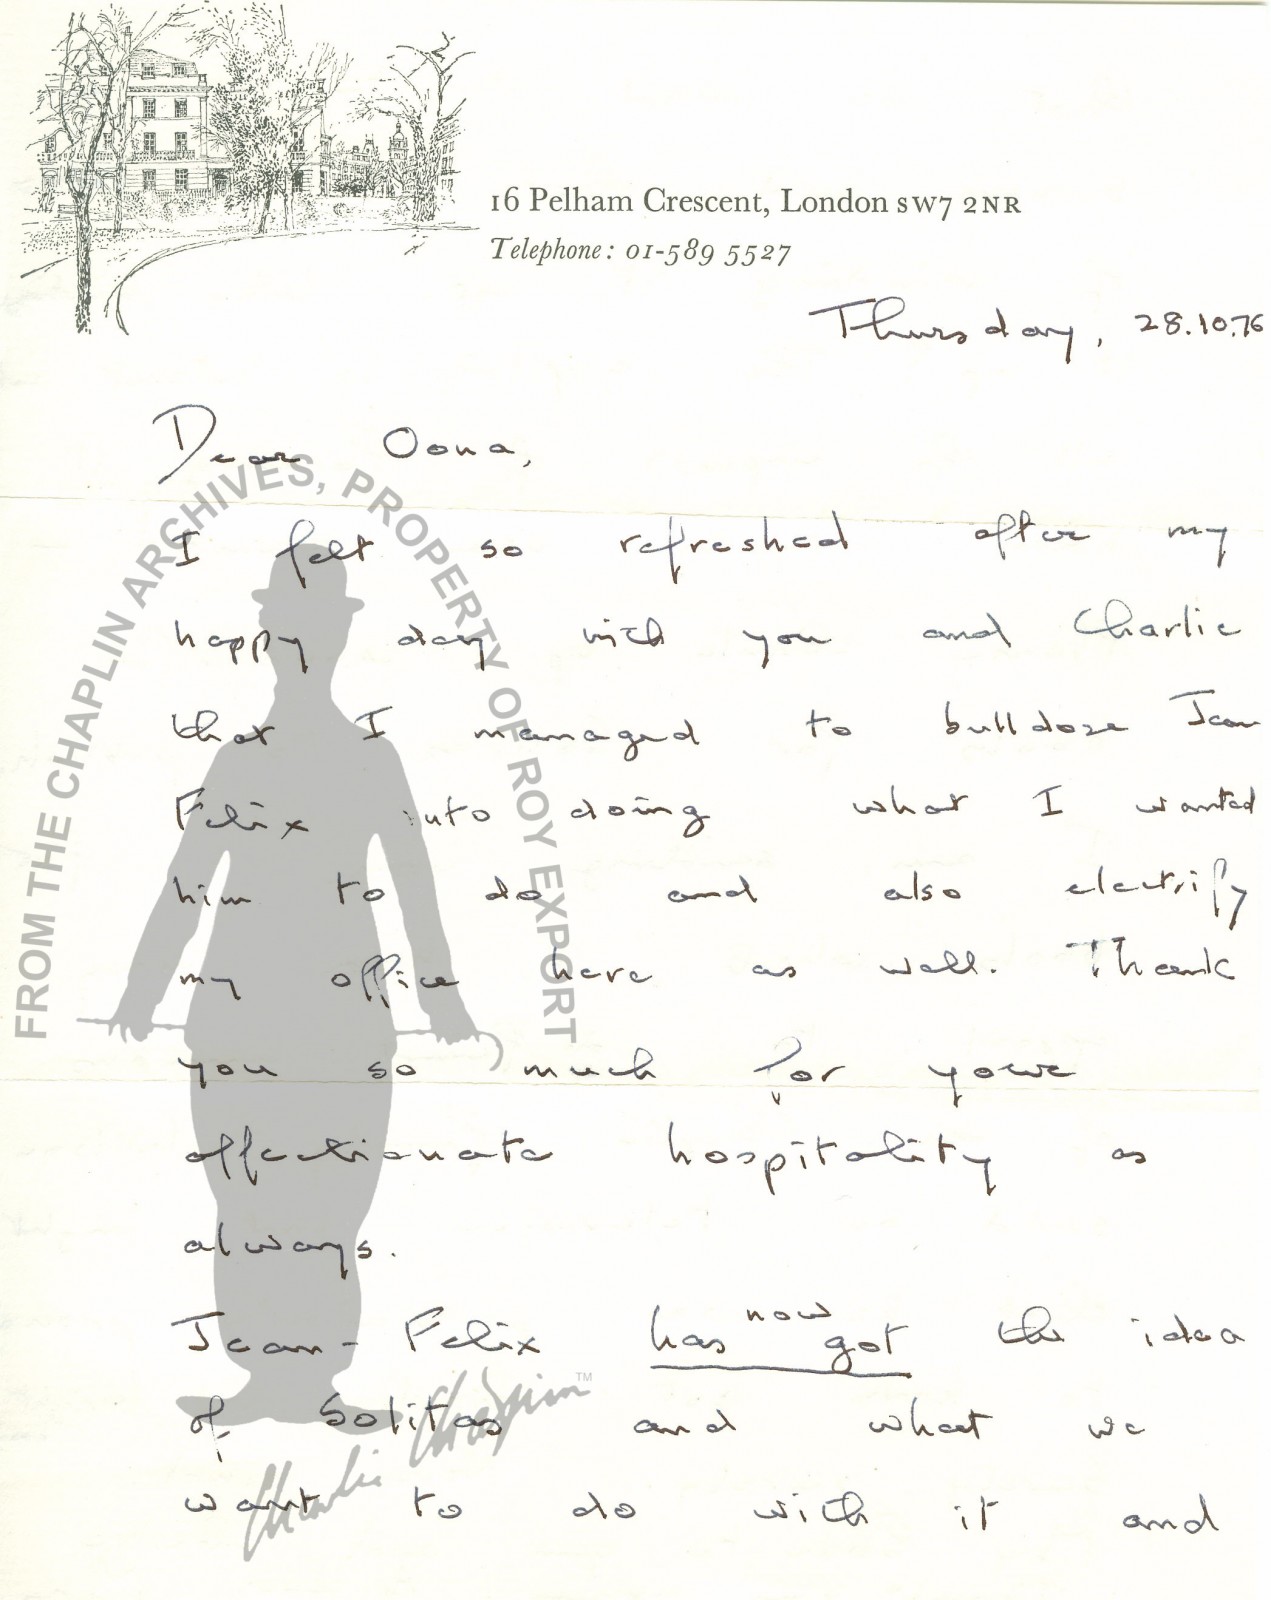 16 Pelham Crescent, London SW7 2NR
Telephone: 01-589 5527
Thursday, 28.10.76
Dear Oona,
I felt so refreshed after my
happy day with you and Charlie
that I managed to bulldoze Jean
Felix into doing what I wanted
him to do and also electrify
my office here as well. Thank
you so much for your
affectionate hospitality as
always.
Jean-Felix has now got the idea
of Solitas and what we
want to do with it and
FROM THE CHAPLIN ARCHIVES, PROPERTY OF ROY EXPORT
Charlie Chaplin™